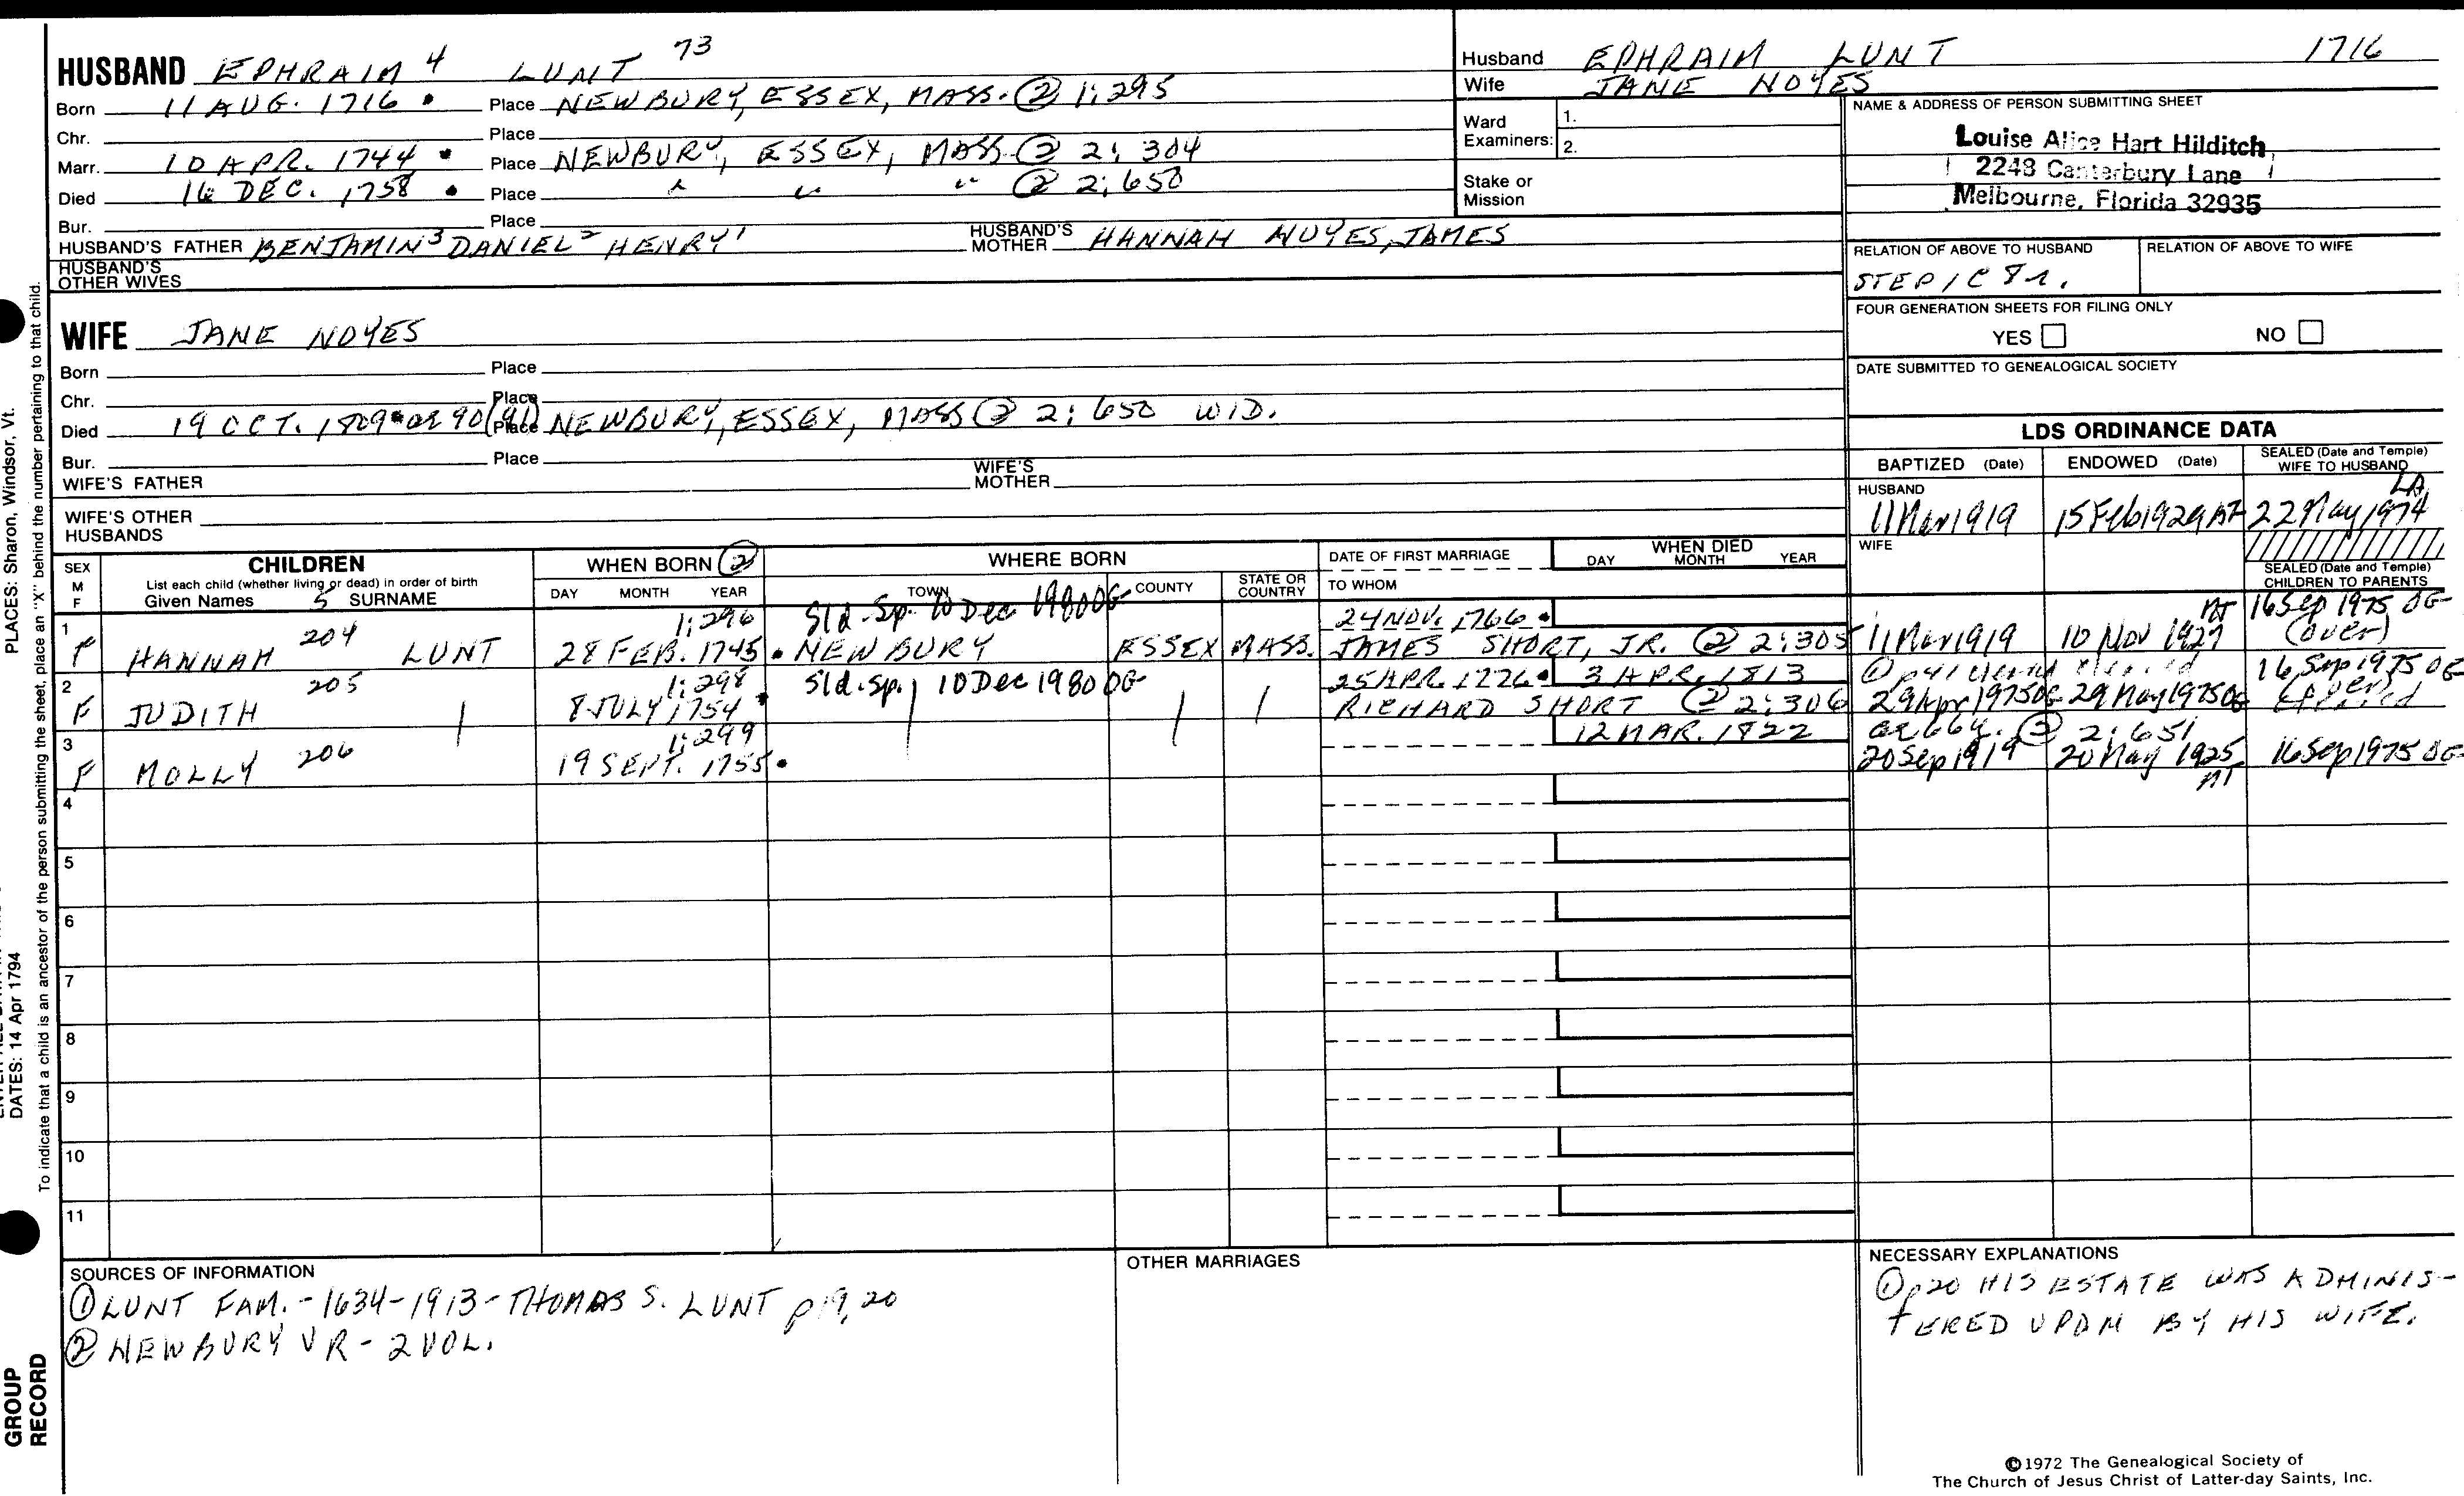 HUSBAND EPHRAIM 4 LUNT 73
Born 11 AUG. 1716 • Place NEWBURY, ESSEX, MASS. ② 1:295
Chr. Place
Marr. 10 APR. 1744 • Place NEWBURY, ESSEX, MASS. ② 2:304
Died 16 DEC. 1758 • Place " " " ② 2:650
Bur. Place
HUSBAND'S FATHER BENJAMIN³ DANIEL² HENRY¹ HUSBAND'S MOTHER HANNAH NOYES, JAMES
HUSBAND'S OTHER WIVES
WIFE JANE NOYES
Born Place
Chr. Place
Died 19 OCT. 1809 • OR 90 (91) Place NEWBURY, ESSEX, MASS ② 2:650 WID.
Bur. Place
WIFE'S FATHER WIFE'S MOTHER
WIFE'S OTHER HUSBANDS
Husband EPHRAIM LUNT 1716
Wife JANE NOYES
Ward Examiners: 1.
2.
Stake or Mission
NAME & ADDRESS OF PERSON SUBMITTING SHEET
Louise Alice Hart Hilditch
2248 Canterbury Lane
Melbourne, Florida 32935
RELATION OF ABOVE TO HUSBAND RELATION OF ABOVE TO WIFE
STEP 1C 8r.
FOUR GENERATION SHEETS FOR FILING ONLY
YES NO
DATE SUBMITTED TO GENEALOGICAL SOCIETY
LDS ORDINANCE DATA
BAPTIZED (Date) ENDOWED (Date) SEALED (Date and Temple) WIFE TO HUSBAND
HUSBAND LA
11 Mar 1919 15 Feb 1929 AZ 22 May 1974
WIFE
SEALED (Date and Temple) CHILDREN TO PARENTS
SEX M F CHILDREN WHEN BORN ② WHERE BORN DATE OF FIRST MARRIAGE WHEN DIED
List each child (whether living or dead) in order of birth
Given Names 5 SURNAME DAY MONTH YEAR TOWN COUNTY STATE OR COUNTRY TO WHOM DAY MONTH YEAR
1 204 1:296 Sld. Sp. 10 Dec 1980 OG 24 NOV. 1766 • 16 Sep 1975 OG
F HANNAH LUNT 28 FEB. 1745 • NEWBURY ESSEX MASS. JAMES SHORT, JR. ② 2:305 11 Mar 1919 10 Nov 1927 (over)
2 205 1:298 Sld. Sp. 10 Dec 1980 OG 25 APR. 1776 • 3 APR. 1813 ① p41 16 Sep 1975 OG
F JUDITH 8 JULY 1754 • RICHARD SHORT ② 2:306 29 Apr 1975 OG 29 May 1975 OG
3 206 1:299 12 MAR. 1822 ae 66y. ② 2:651
F MOLLY 19 SEPT. 1755 • 20 Sep 1919 20 May 1925 16 Sep 1975 OG
4
5
6
7
8
9
10
11
SOURCES OF INFORMATION
① LUNT FAM. - 1634-1913 - THOMAS S. LUNT p19, 20
② NEWBURY VR - 2 VOL.
OTHER MARRIAGES
NECESSARY EXPLANATIONS
① p20 HIS ESTATE WAS ADMINIS-
TERED UPON BY HIS WIFE.
©1972 The Genealogical Society of
The Church of Jesus Christ of Latter-day Saints, Inc.
PLACES: Sharon, Windsor, Vt.
DATES: 14 Apr 1794
To indicate that a child is an ancestor of the person submitting the sheet, place an "X" behind the number pertaining to that child.
GROUP
RECORD